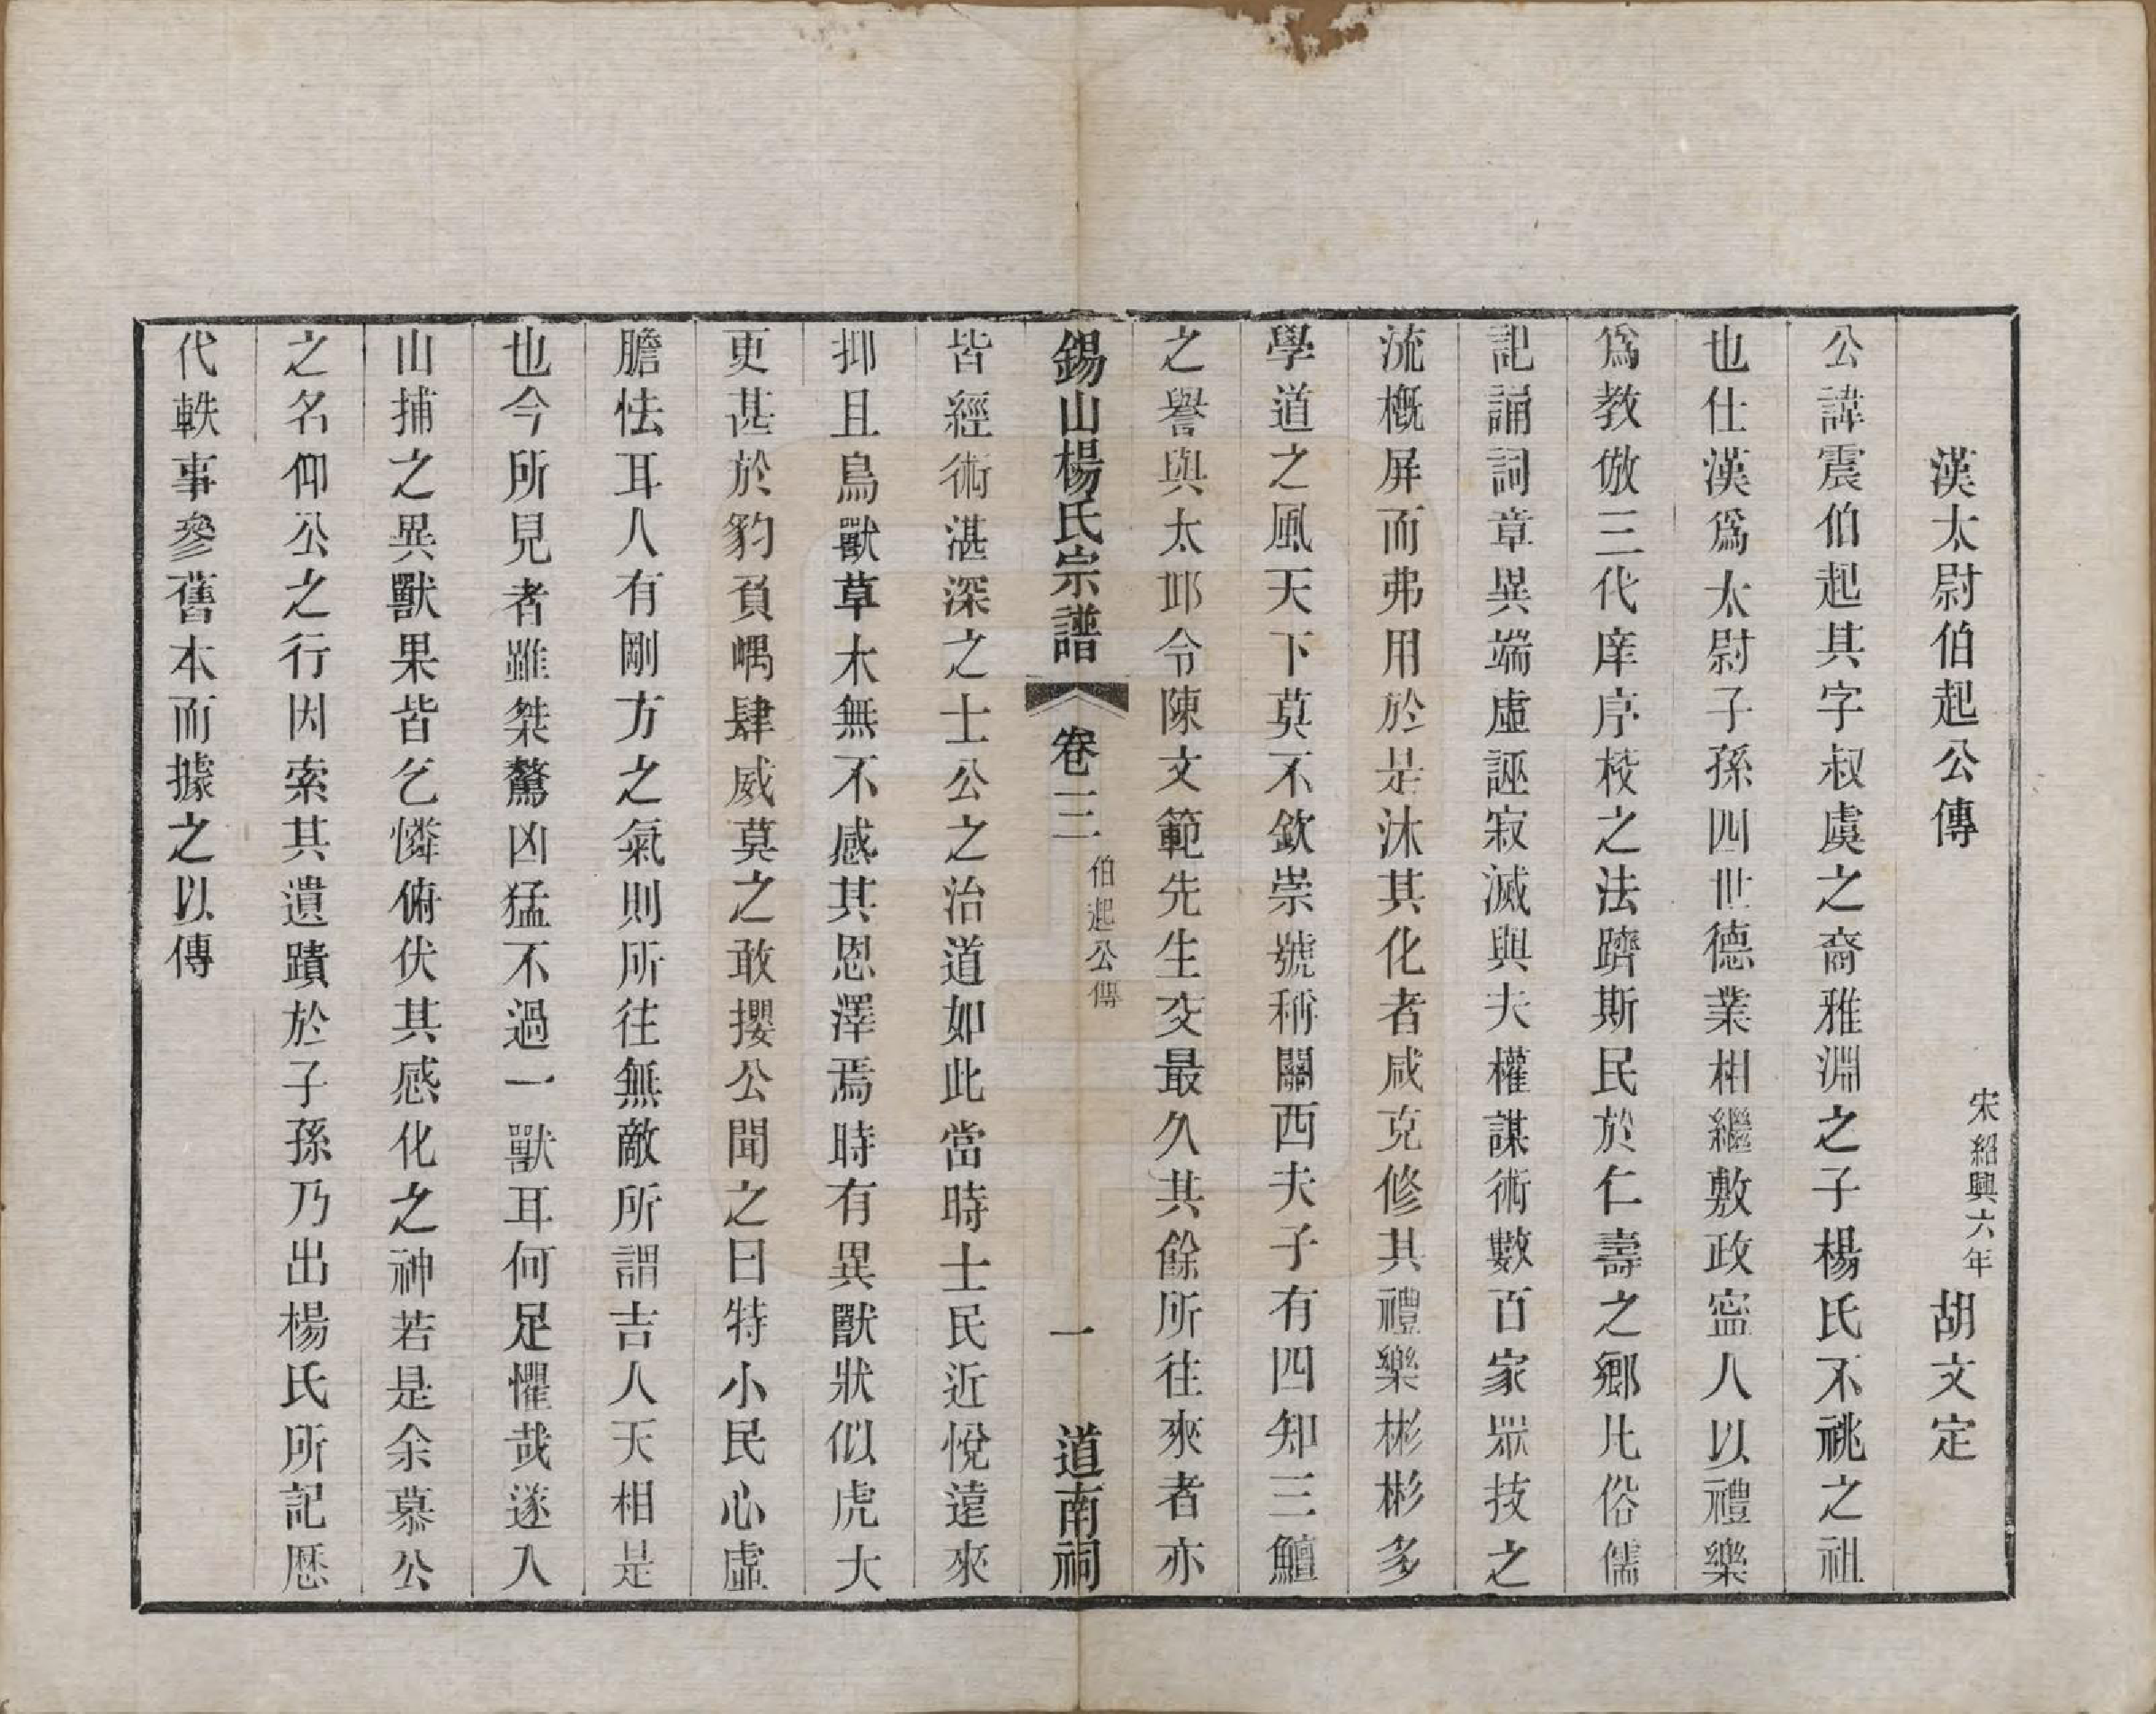 漢太尉伯起公傳 宋紹興六年 胡文定
公諱震伯起其字叔虞之裔雅淵之子楊氏不祧之祖
也仕漢爲太尉子孫四世德業相繼敷政寍人以禮樂
爲教倣三代庠序校之法躋斯民於仁壽之鄉凡俗儒
記誦詞章異端虛誣寂滅與夫權謀術數百家眾技之
流概屏而弗用於是沐其化者咸克修其禮樂彬彬多
學道之風天下莫不欽崇號稱關西夫子有四知三鱣
之譽與太邱令陳文範先生交最久共餘所往來者亦
錫山楊氏宗譜 卷三 伯起公傳 一 道南祠
皆經術湛深之士公之治道如此當時士民近悅遠來
抑且鳥獸草木無不感其恩澤焉時有異獸狀似虎大
更甚於豹負嵎肆威莫之敢攖公聞之曰特小民心虛
膽怯耳人有剛方之氣則所往無敵所謂吉人天相是
也今所見者雖桀驁凶猛不過一獸耳何足懼哉遂入
山捕之異獸果皆乞憐俯伏其感化之神若是余慕公
之名仰公之行因索其遺蹟於子孫乃出楊氏所記歷
代軼事參舊本而據之以傳